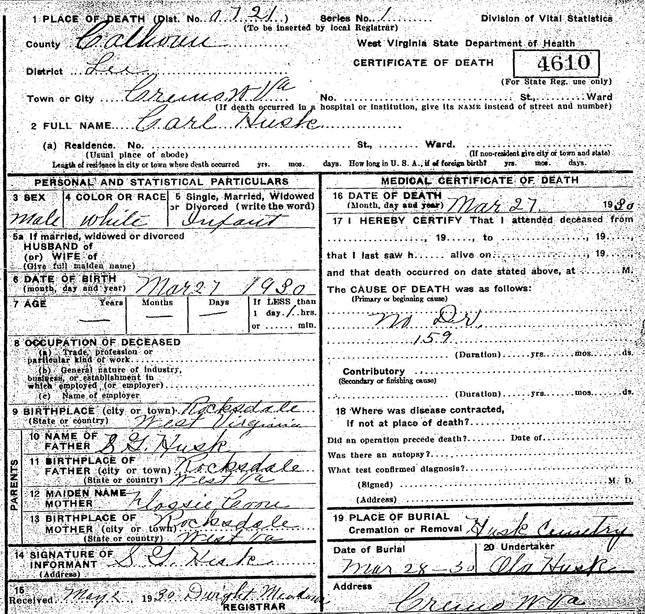 1 PLACE OF DEATH (Dist. No. 0721) Series No. 1 Division of Vital Statistics
(To be inserted by local Registrar)
County Calhoun West Virginia State Department of Health
CERTIFICATE OF DEATH 4610
District Lee
(For State Reg. use only)
Town or City Cremo W Va No. St., Ward
(If death occurred in a hospital or institution, give its NAME instead of street and number)
2 FULL NAME Carl Husk
(a) Residence. No. St., Ward.
(Usual place of abode) (If non-resident give city or town and state)
Length of residence in city or town where death occurred yrs. mos. days. How long in U. S. A., if of foreign birth? yrs. mos. days.
PERSONAL AND STATISTICAL PARTICULARS
3 SEX 4 COLOR OR RACE 5 Single, Married, Widowed
or Divorced (write the word)
male white Infant
5a If married, widowed or divorced
HUSBAND of
(or) WIFE of
(Give full maiden name)
6 DATE OF BIRTH
(month, day and year) Mar 27 1930
7 AGE Years Months Days If LESS than
— — — 1 day, 1 hrs.
or min.
8 OCCUPATION OF DECEASED
(a) Trade, profession or
particular kind of work
(b) General nature of industry,
business, or establishment in
which employed (or employer)
(c) Name of employer
9 BIRTHPLACE (city or town) Rocksdale
(State or country) West Virginia
PARENTS
10 NAME OF
FATHER S G Husk
11 BIRTHPLACE OF
FATHER (city or town) Rocksdale
(State or country) West Va
12 MAIDEN NAME
MOTHER Flossie
13 BIRTHPLACE OF
MOTHER (city or town) Rocksdale
(State or country) West Va
14 SIGNATURE OF
INFORMANT S G Husk
(Address)
15
Received May 2 1930 Dwight
REGISTRAR
MEDICAL CERTIFICATE OF DEATH
16 DATE OF DEATH
(Month, day and year) Mar 27 1930
17 I HEREBY CERTIFY That I attended deceased from
, 19 , to , 19
that I last saw h alive on , 19
and that death occurred on date stated above, at M.
The CAUSE OF DEATH was as follows:
(Primary or beginning cause)
No Dr.
159
(Duration) yrs. mos. ds.
Contributory
(Secondary or finishing cause)
(Duration) yrs. mos. ds.
18 Where was disease contracted,
if not at place of death?
Did an operation precede death? Date of
Was there an autopsy?
What test confirmed diagnosis?
(Signed) M. D.
(Address)
19 PLACE OF BURIAL
Cremation or Removal Husk Cemetry
Date of Burial 20 Undertaker
Mar 28-30 Ola Husk
Address
Cremo W Va